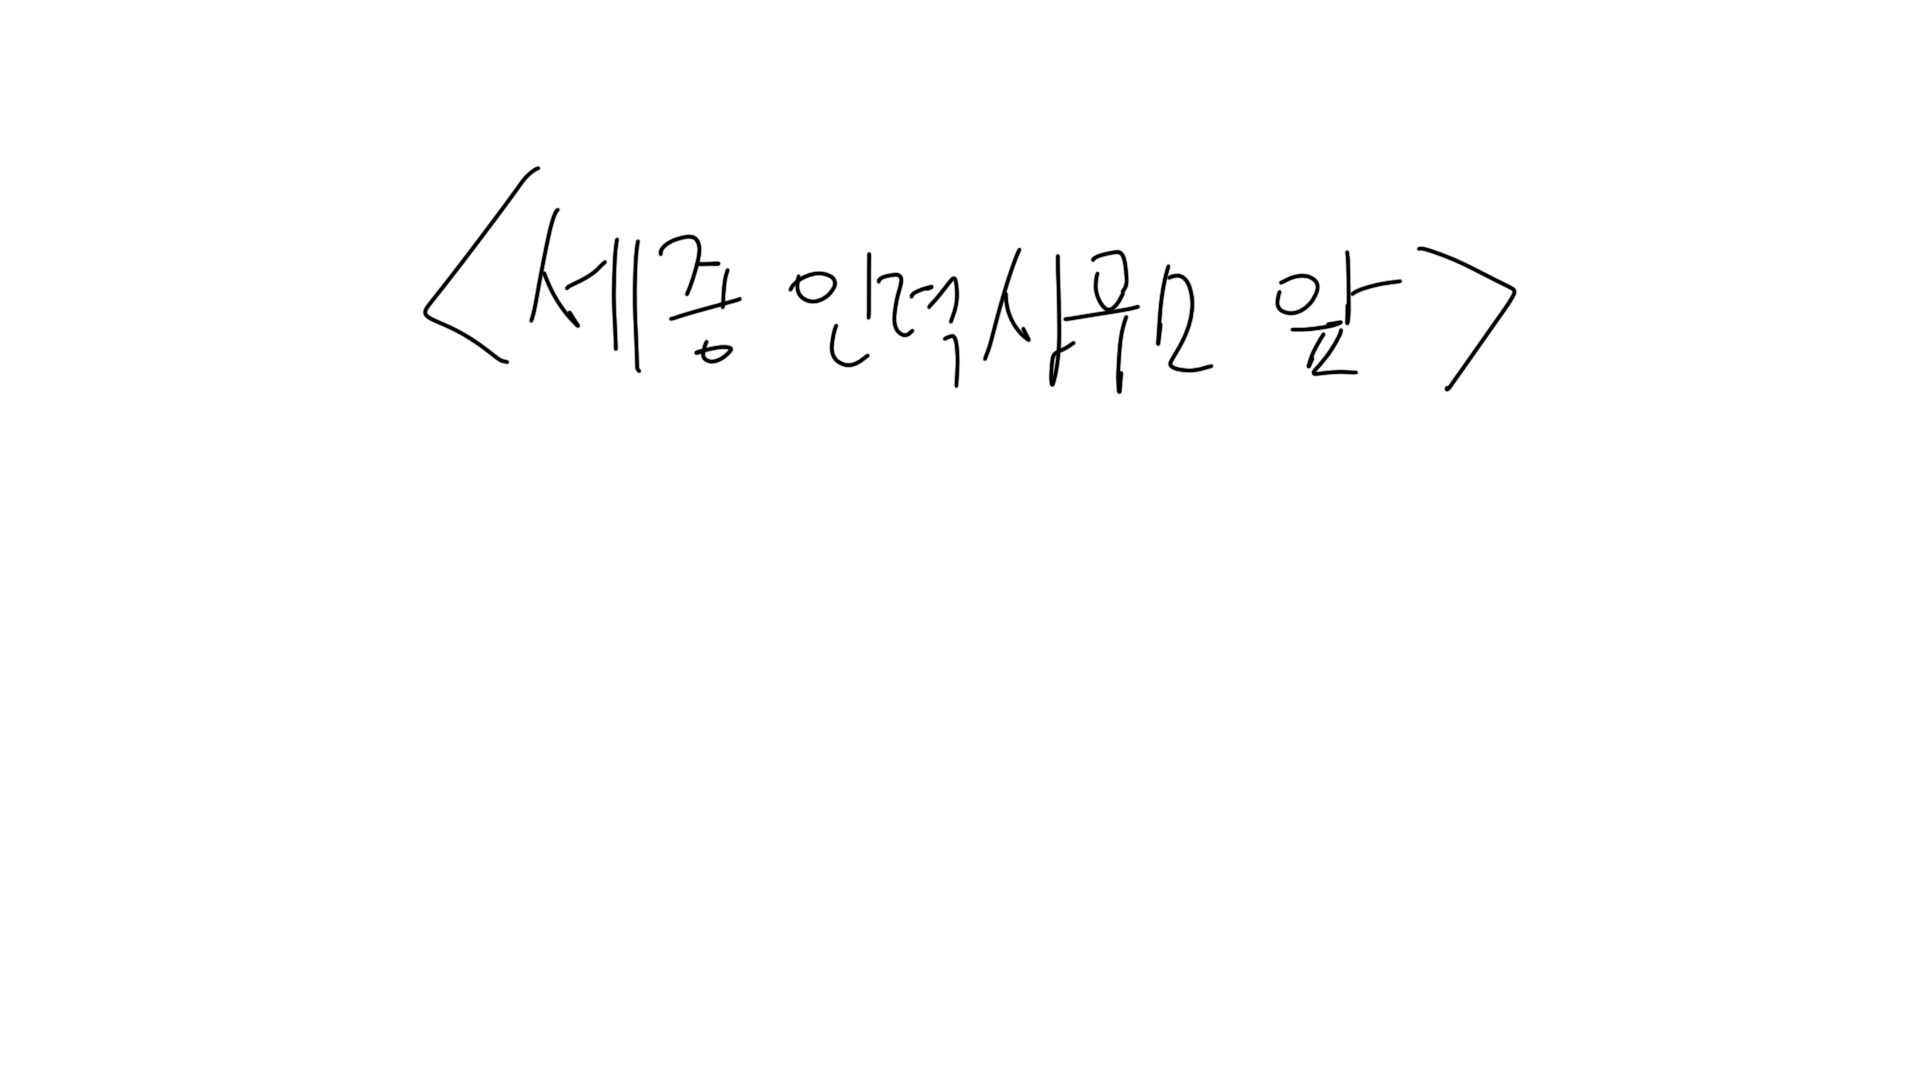 <세종 인력사무고 앞>